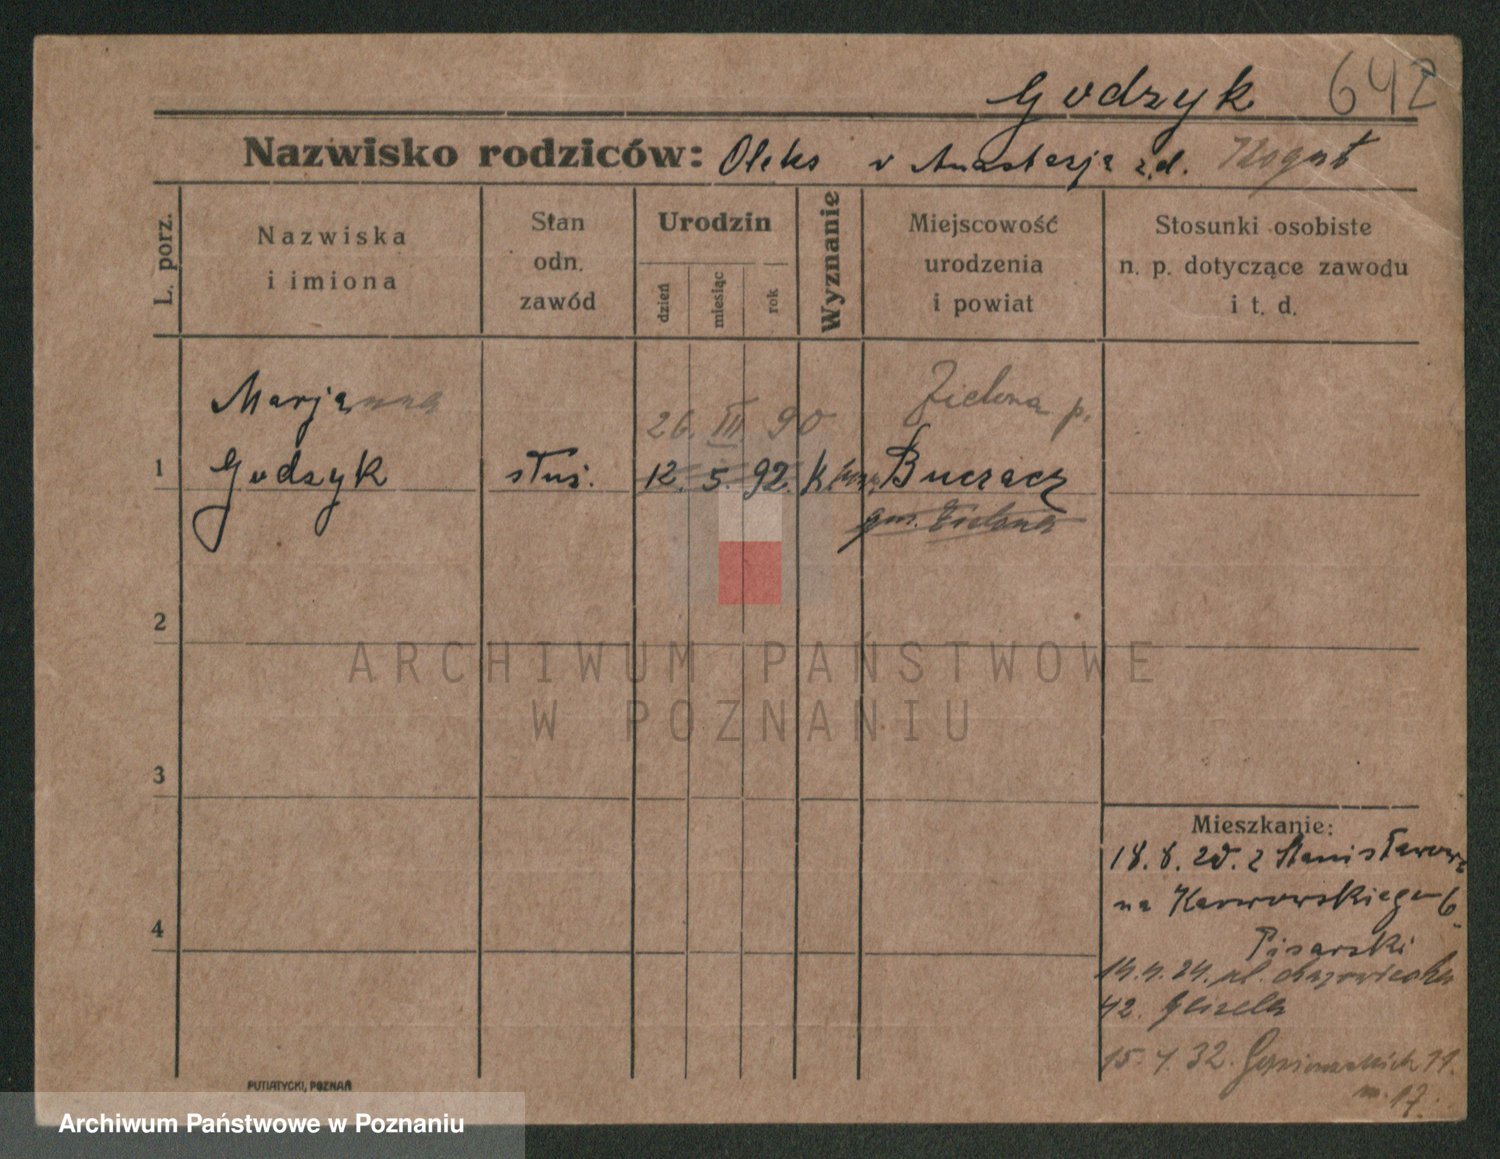 Godzyk 642
Nazwisko rodziców: Oleks v Anastazja z.d. Kogut
L. porz.
Nazwiska
i imiona
Stan
odn.
zawód
Urodzin
dzień
miesiąc
rok
Wyznanie
Miejscowość
urodzenia
i powiat
Stosunki osobiste
n. p. dotyczące zawodu
i t. d.
Marjanna
26. III 90
Zielona p.
1 Godzyk służ. 12. 5. 92. K Buczacz
gm. Zielona
2
3
4
Mieszkanie:
18.8.20. z Stanisławowa
na Karwowskiego 6
Pisarski
14.4.24. ul. Mazowiecka
42.
15.4.32.
m. 17.
PUTIATYCKI, POZNAŃ
ARCHIWUM PAŃSTWOWE
W POZNANIU
Archiwum Państwowe w Poznaniu